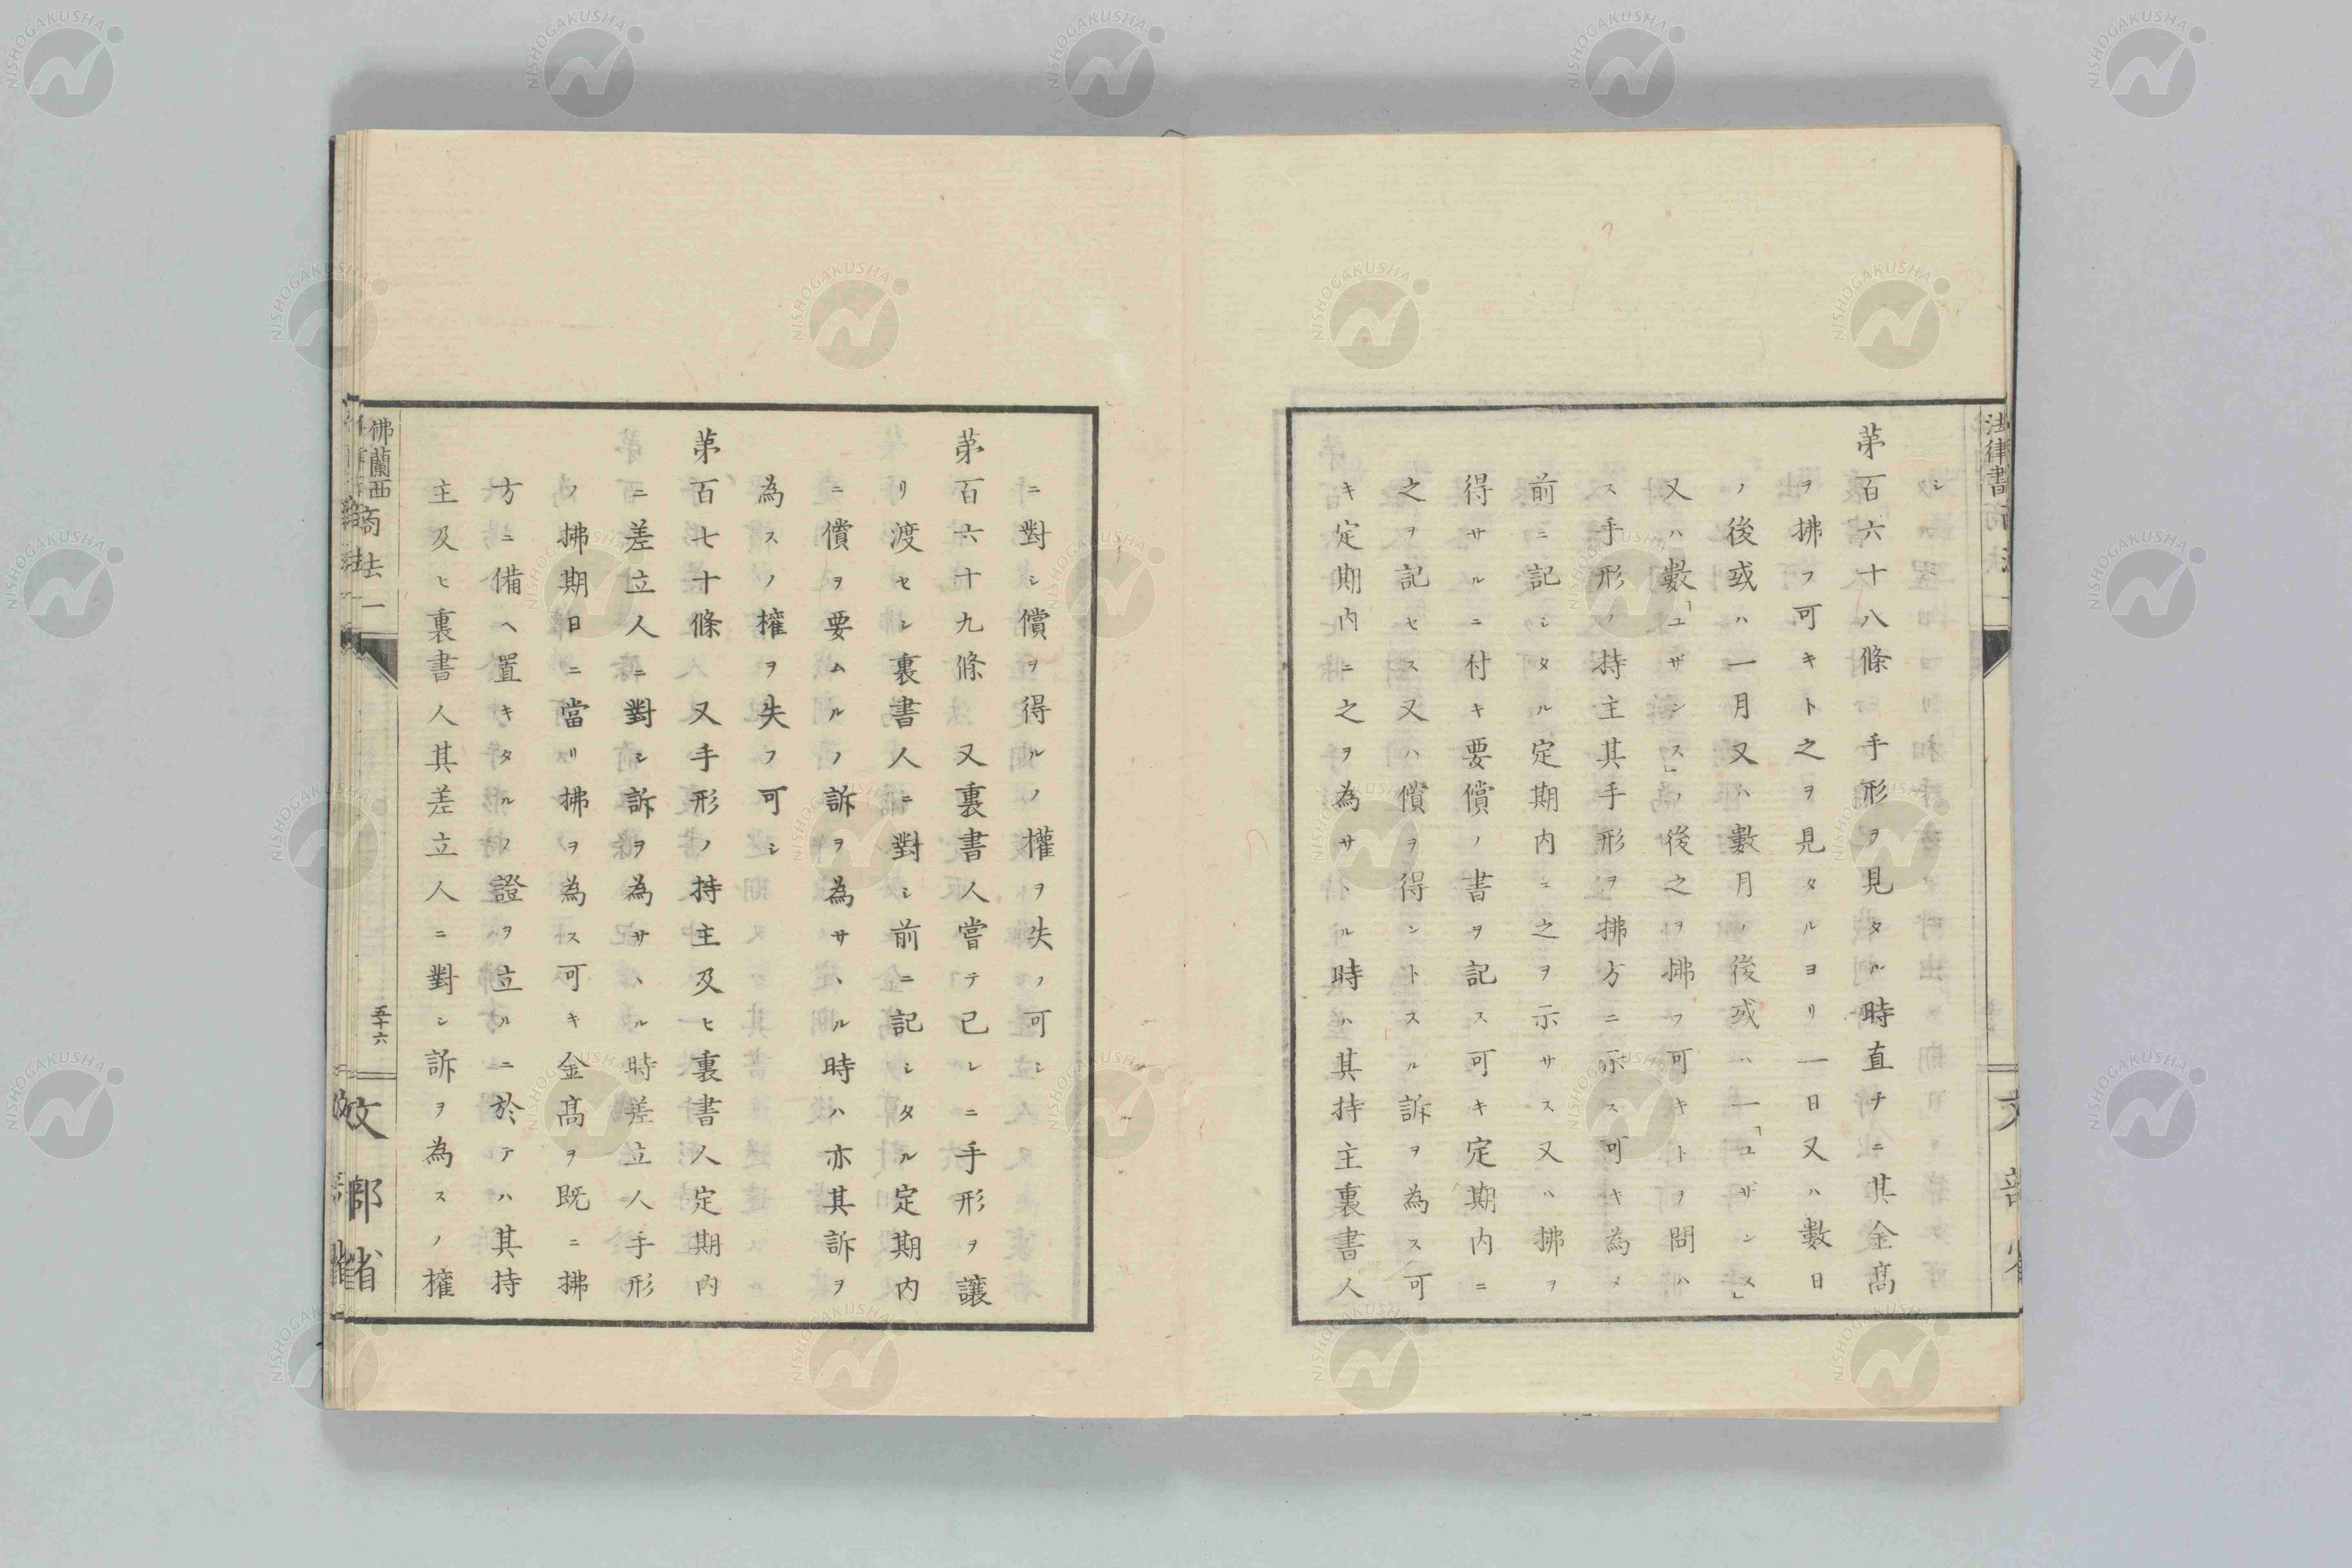 シ
第百六十八條 手形ヲ見タル時直チニ其金髙
ヲ拂フ可キト之ヲ見タルヨリ一日又ハ數日
ノ後或ハ一月又ハ數月ノ後或ハ一「ユザンス」
又ハ數「ユザンス」ノ後之ヲ拂フ可キトヲ問ハ
ス手形ノ持主其手形ヲ拂方ニ示ス可キ為メ
前ニ記シタル定期內ニ之ヲ示サス又ハ拂ヲ
得サルニ付キ要償ノ書ヲ記ス可キ定期內ニ
之ヲ記セス又ハ償ヲ得ントスル訴ヲ為ス可
キ定期内ニ之ヲ為サヽル時ハ其持主裏書人
ニ對シ償ヲ得ルノ權ヲ失ノ可シ
第百六十九條 又裏書人嘗テ己レニ手形ヲ讓
リ渡セシ裏書人ニ對シ前ニ記シタル定期内
ニ償ヲ要ムルノ訴ヲ為サヽル時ハ亦其訴ヲ
為スノ權ヲ失フ可シ
第百七十條 又手形ノ持主及ヒ裏書人定期內
ニ差立人ニ對シ訴ヲ為サヽル時差立人手形
ノ拂期日ニ當リ拂ヲ為ス可キ金髙ヲ既ニ拂
方ニ備ヘ置キタルノ證ヲ立ルニ於テハ其持
主及ヒ裏書人其差立人ニ對シ訴ヲ為スノ權
佛蘭西商法一
五十六
文部省
法律書
NISHOGAKUSHA